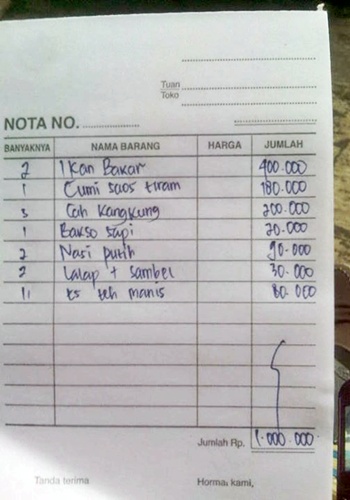 Tuan
Toko
NOTA NO.
BANYAKNYA NAMA BARANG HARGA JUMLAH
2 Ikan Bakar 400.000
1 Cumi saos tiram 180.000
3 Cah Kangkung 200.000
1 Bakso sapi 20.000
2 Nasi putih 90.000
2 Lalap + sambel 30.000
11 es teh manis 80.000
Jumlah Rp. 1.000.000
Tanda terima Hormat kami,